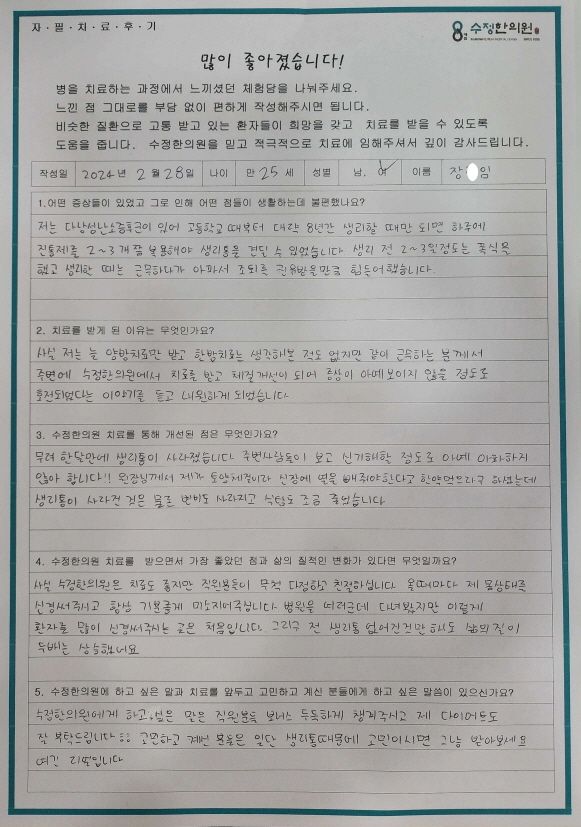 자·필·치·료·후·기
수정한의원
많이 좋아졌습니다!
병을 치료하는 과정에서 느끼셨던 체험담을 나눠주세요.
느낀 점 그대로를 부담 없이 편하게 작성해주시면 됩니다.
비슷한 질환으로 고통 받고 있는 환자들이 희망을 갖고 치료를 받을 수 있도록
도움을 줍니다. 수정한의원을 믿고 적극적으로 치료에 임해주셔서 깊이 감사드립니다.
작성일 2024년 2월 28일 나이 만 25 세 성별 남, 여 이름 장 임
1.어떤 증상들이 있었고 그로 인해 어떤 점들이 생활하는데 불편했나요?
저는 다낭성난소증후군이 있어 고등학교 때부터 대략 8년간 생리할 때만 되면 하루에
진통제를 2~3개 복용해야 생리통을 견딜 수 있었습니다 생리 전 2~3일정도는 폭식을
했고 생리할 때는 근무하다가 아파서 조퇴를 권유받을만큼 힘들어했습니다.
2. 치료를 받게 된 이유는 무엇인가요?
사실 저는 늘 양방치료만 받고 한방치료는 생각해본 적도 없지만 같이 근무하는 분께서
주변에 수정한의원에서 치료를 받고 체질개선이 되어 증상이 아예보이지 않을 정도로
호전되었다는 이야기를 듣고 내원하게 되었습니다
3. 수정한의원 치료를 통해 개선된 점은 무엇인가요?
무려 한달만에 생리통이 사라졌습니다 주변사람들이 보고 신기해할 정도로 아예 아파하지
않아 합니다!! 원장님께서 제가 소양체질이라 신장에 열을 빼줘야한다고 한약먹으라구 하셨는데
생리통이 사라진 것은 물론 변비도 사라지고 식탐도 조금 줄었습니다
4. 수정한의원 치료를 받으면서 가장 좋았던 점과 삶의 질적인 변화가 있다면 무엇일까요?
사실 수정한의원은 치료도 좋지만 직원분들이 무척 다정하고 친절하십니다 올때마다 제 몸상태를
신경써주시고 항상 기분좋게 미소지어주십니다 병원을 여러군데 다녀봤지만 이렇게
환자를 많이 신경써주시는 곳은 처음입니다. 그리구 전 생리통 없어진것만 해도 삶의 질이
두배는 상승했네요
5. 수정한의원에 하고 싶은 말과 치료를 앞두고 고민하고 계신 분들에게 하고 싶은 말씀이 있으신가요?
수정한의원에게 하고싶은 말은 직원분들 보너스 두둑하게 챙겨주시고 제 다이어트도
잘 부탁드립니다 고민하고 계신 분들은 일단 생리통때문에 고민이시면 그냥 받아보세요
여긴 리얼입니다